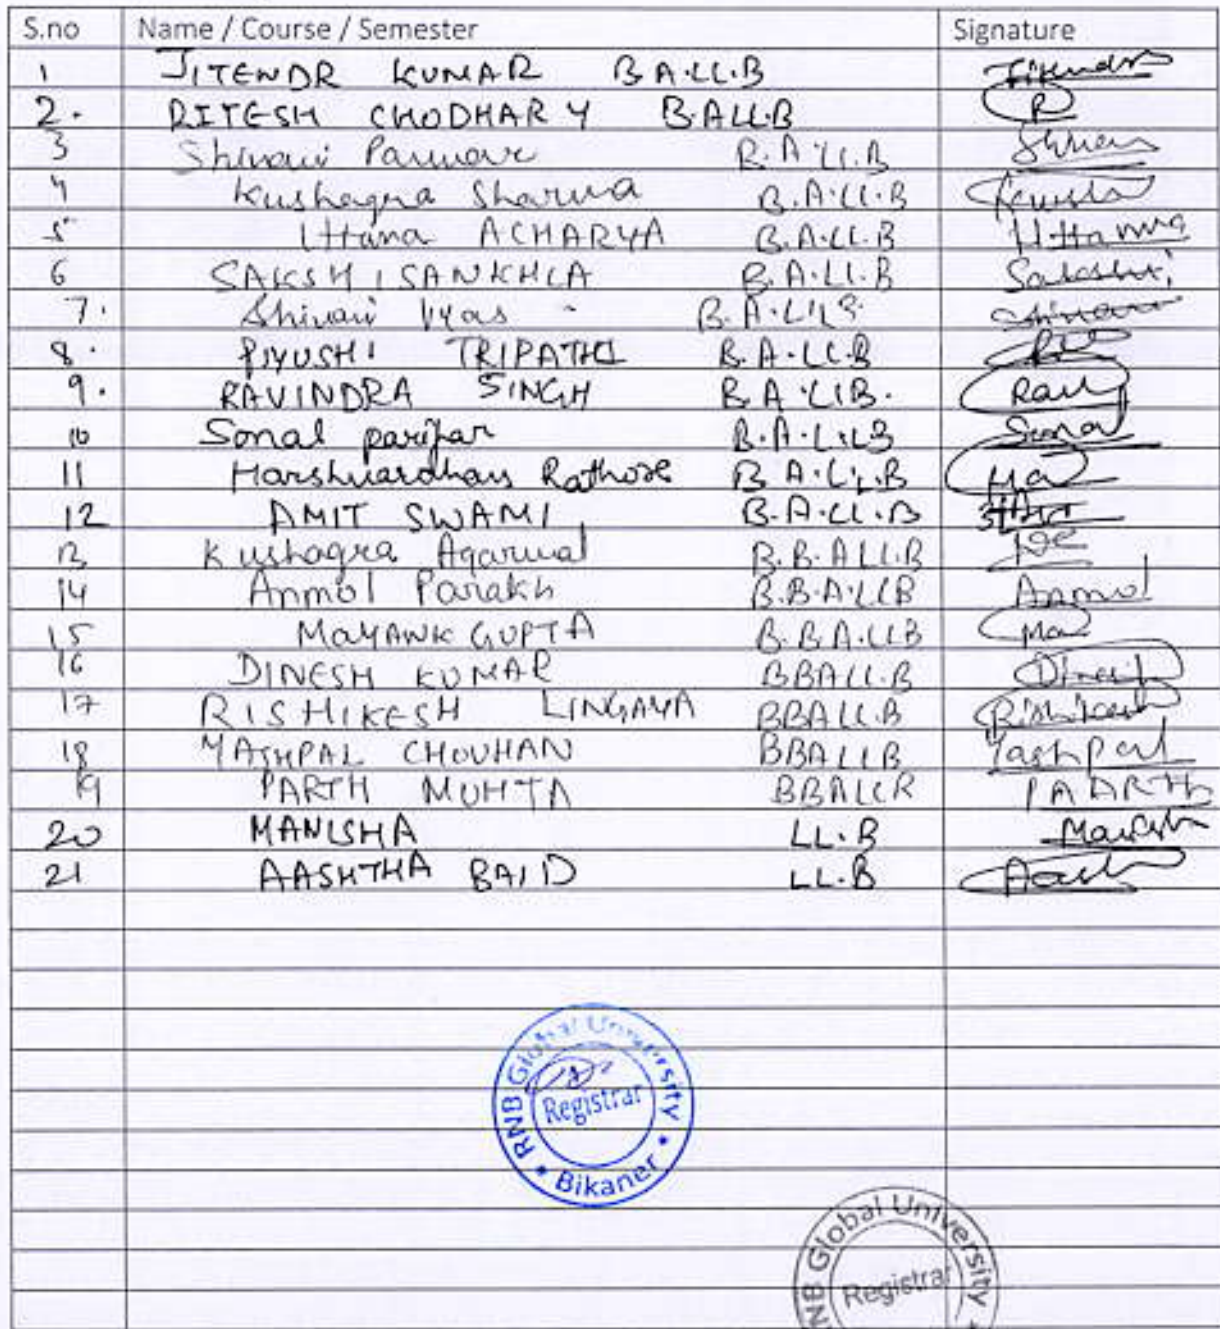 S.no Name / Course / Semester Signature
1 JITENDR KUMAR B A.LL.B Jitendra
2. RITESH CHODHARY B.ALL.B R
3 Shivani Parmar B.A.LL.B Shivani
4 Kushagra Sharma B.A.LL.B Kusha
5 Uttama ACHARYA B.A.LL.B Uttama
6 SAKSHI SANKHLA B.A.LL.B Sakshi
7. Shivani Vyas B.A.LLB Shivani
8. PIYUSHI TRIPATHI B.A.LL.B
9. RAVINDRA SINGH B.A.LLB. Ravi
10 Sonal parihar B.A.L.LB Sonal
11 Harshvardhan Rathore B.A.L.L.B Ha
12 AMIT SWAMI B.A.LL.B अमित
13 Kushagra Agarwal B.B.ALL.B
14 Anmol Parakh B.B.A.LLB Anmol
15 MAYANK GUPTA B.B.A.LLB Ma
16 DINESH KUMAR BBALL.B Dinesh
17 RISHIKESH LINGAYA BBALL.B Rishikesh
18 YASHPAL CHOUHAN BBALLB Yashpal
19 PARTH MUHTA BBALLB PAARTH
20 MANISHA LL.B Manisha
21 AASHTHA BAID LL.B Aash
RNB Global University
Registrar
Bikaner
RNB Global University
Registrar